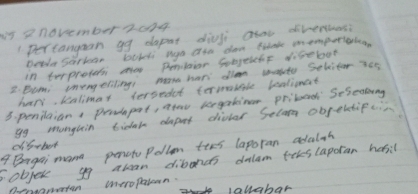 2 November 2024
1. Pertanyaan yg dapat diuji atau diverifikasi
berdasarkan bukti nya ata dan tidak memperlukan
interpretasi atau Penilaian Subjektif disebut
2. Bumi mengelilingi mata hari dlam waktu Sekitar 365
hari. Kalimat tersebut termasuk kalimat
3. penilaian, pendapat, atau keyakinan pribadi Seseorang
yg mungkin tidak dapat diukur Secara objektif
disebut
4. Bagai mana penutup dlam teks laporan adalah
5. objek yg akan dibahas dalam teks laporan hasil
Pengamatan merupakan.
Jawaban